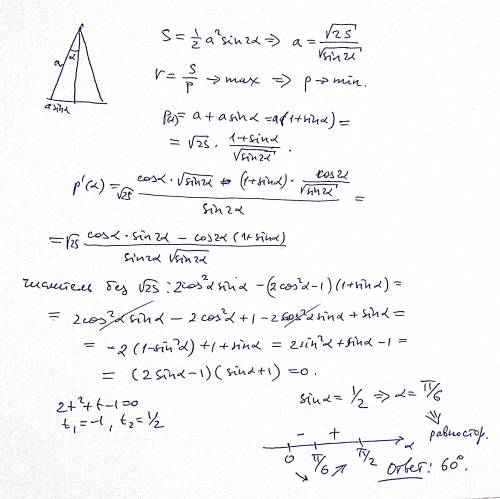 a
α
a sinα
S = 1/2 a² sin2α => a = √2S / √sin2α
r = S/p → max => p → min.
p(α) = a + a sinα = a(1+sinα) =
= √2S · (1+sinα) / √sin2α.
p'(α) = √2S (cosα · √sin2α - (1+sinα) · cos2α/√sin2α) / sin2α =
= √2S (cosα · sin2α - cos2α (1+sinα)) / (sin2α √sin2α)
Числитель без √2S : 2cos²α sinα - (2cos²α-1)(1+sinα) =
= 2cos²α sinα - 2cos²α + 1 - 2cos²α sinα + sinα =
= -2(1-sin²α) + 1 + sinα = 2sin²α + sinα - 1 =
= (2sinα-1)(sinα+1) = 0.
2t²+t-1=0
t₁=-1, t₂=1/2
sinα = 1/2 => α = π/6
⇓
равностор.
- +
0 π/6 π/2 α
↘ ↗
Ответ: 60°.